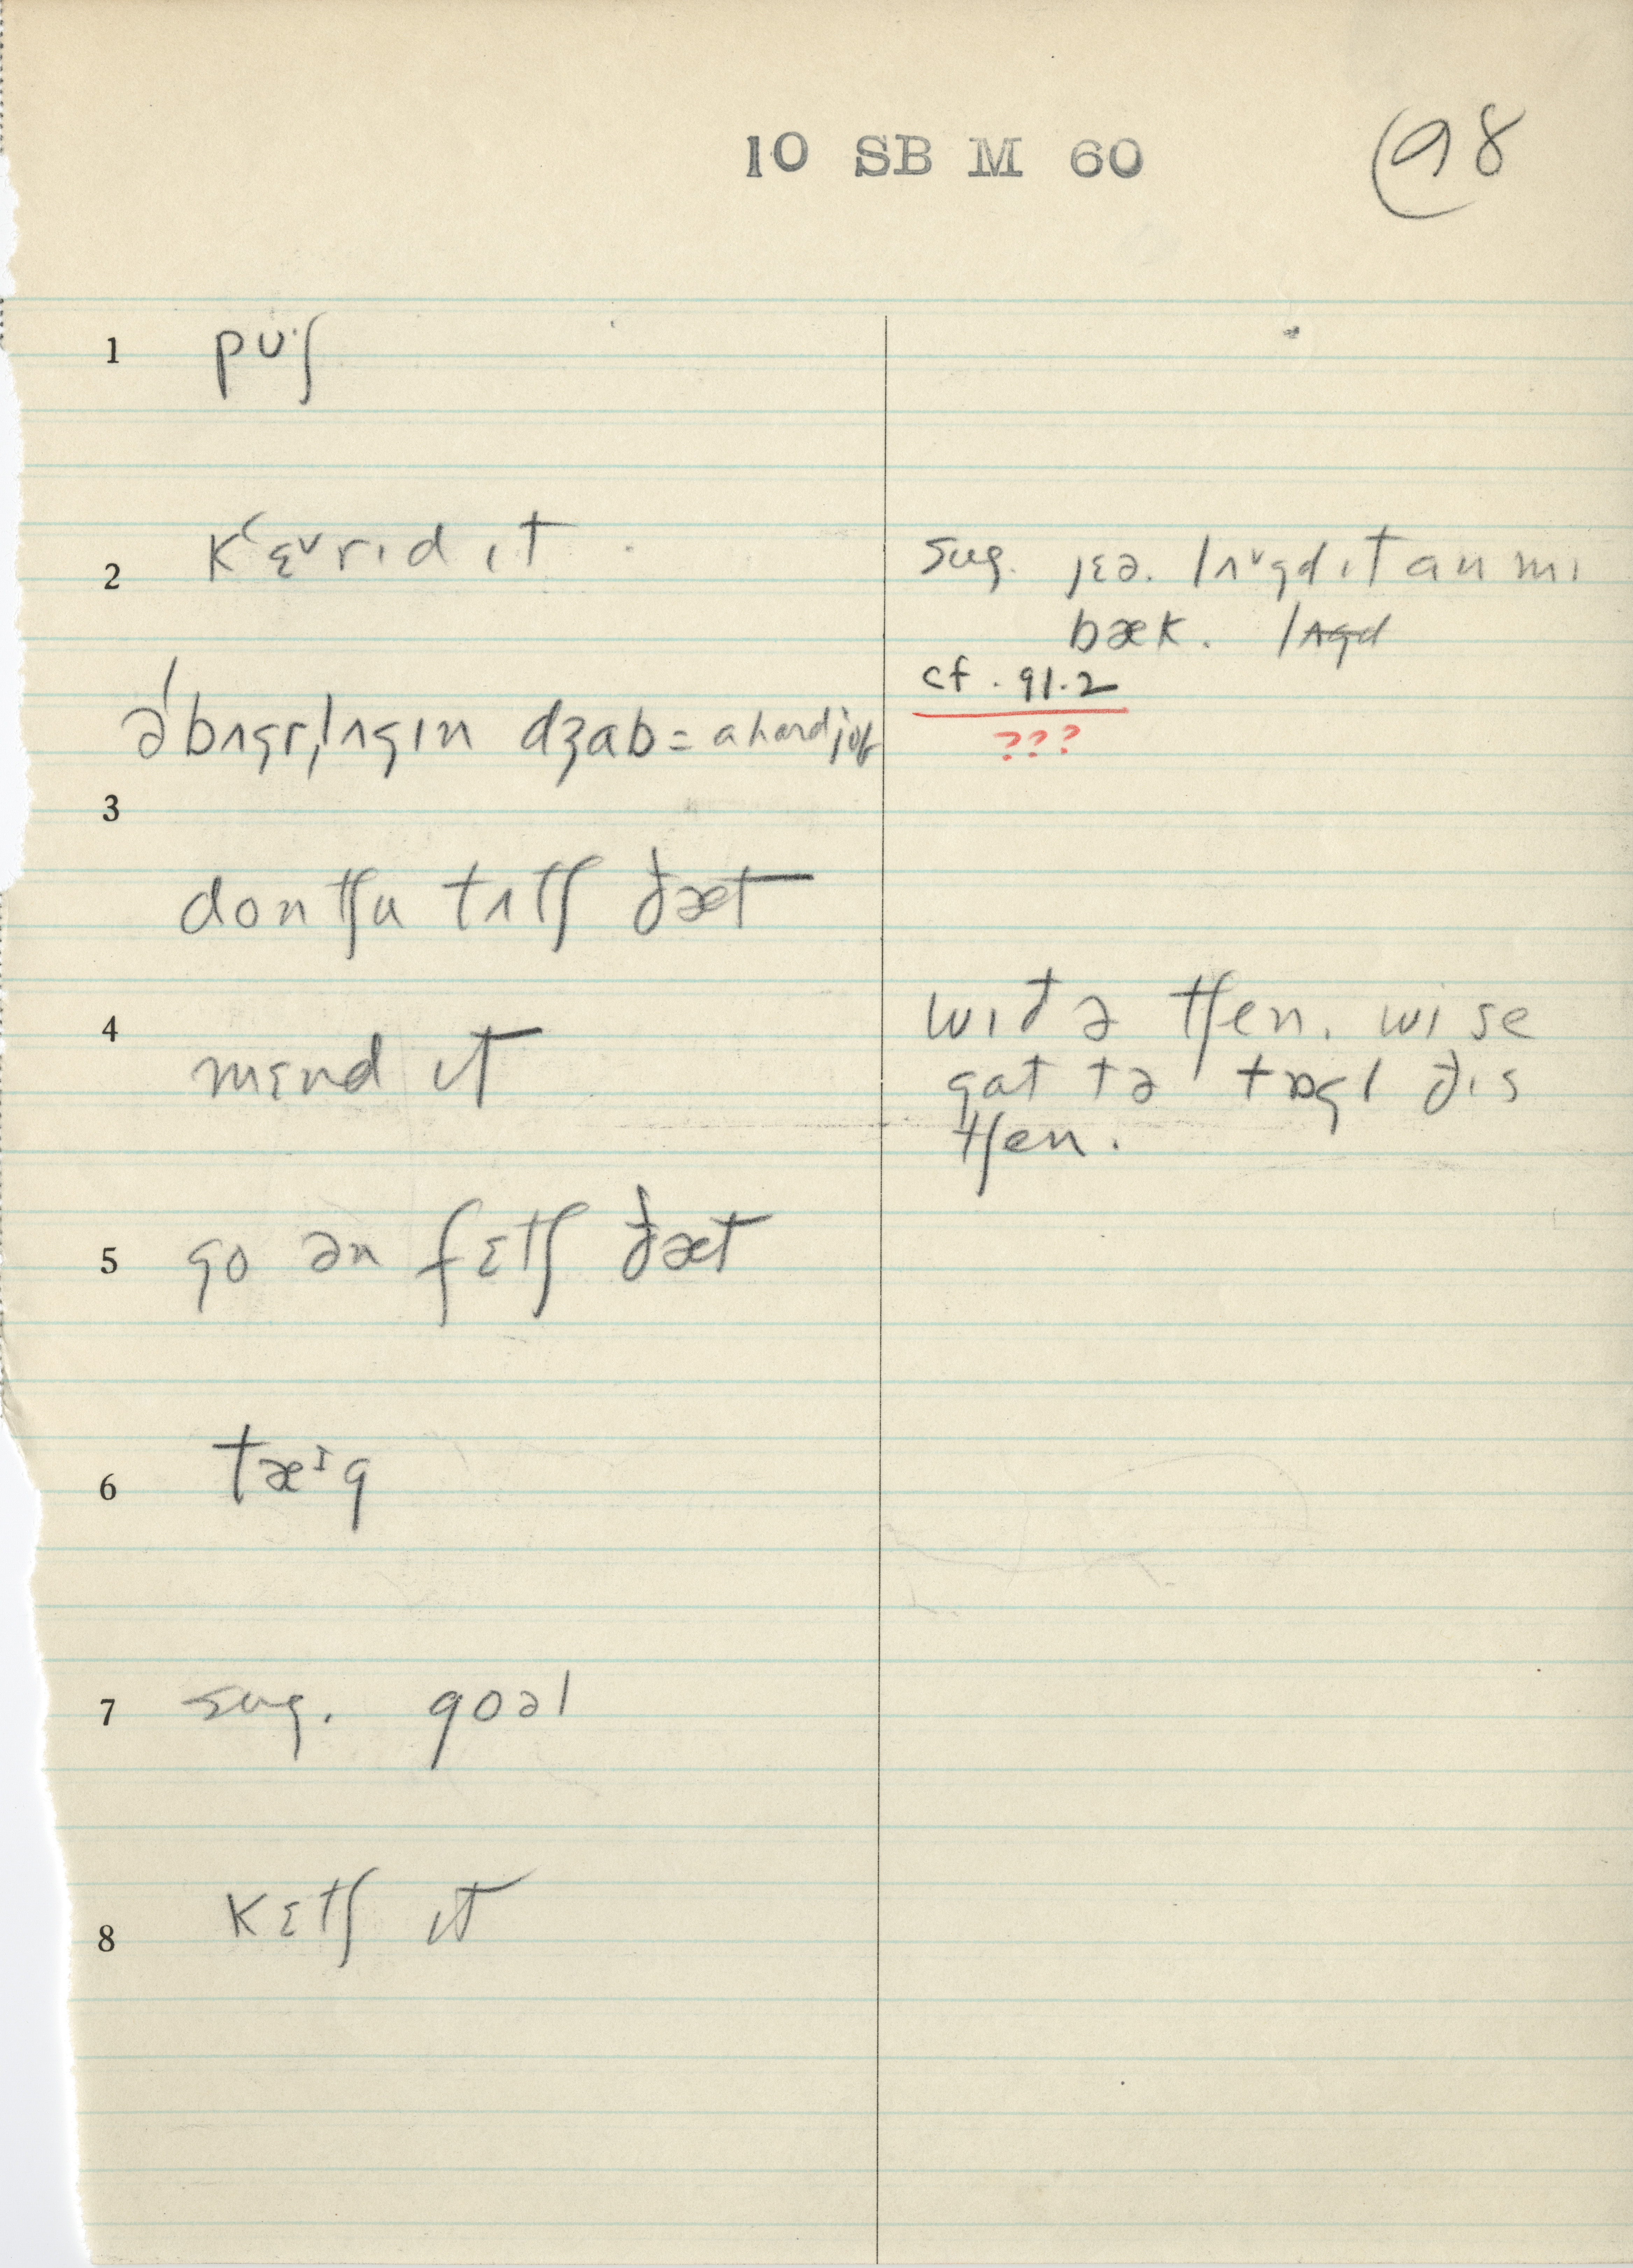 10 SB M 60
98
1 pʊ·ʃ
2 kʽɛᵛrɪd ɪt
sug. jɛə. lʌᵛgd ɪt an mɪ
bæk. lʌgd
cf. 91.2
???
ə ˈbʌgr̩lʌgɪn dʒab = a hard job
3
dontʃu tʌtʃ ðæt
4 mɛnd ɪt
wɪð ə tʃen. wi se
gat tə tɒgl ðɪs
tʃen.
5 go ən fɛtʃ ðæt
6 tæᶦg
7 sug. goəl
8 kɛtʃ ɪt